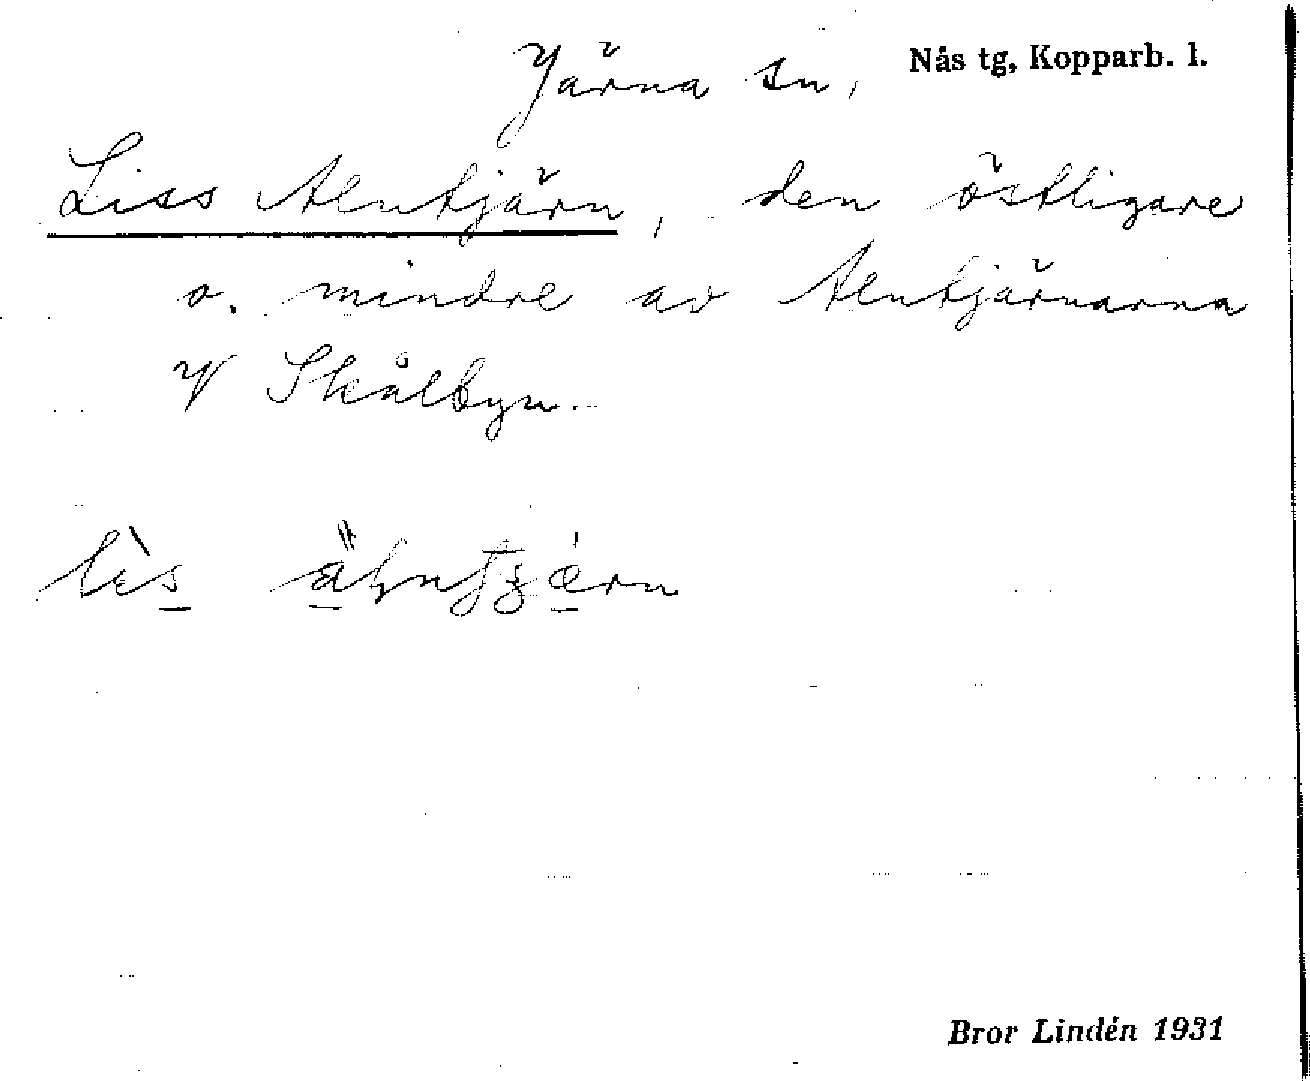 Järna sn, Nås tg, Kopparb. l.
Liss Alntjärn, den östligare
o. mindre av Alntjärnarna
v Skålbyn.
lès
Bror Lindén 1931